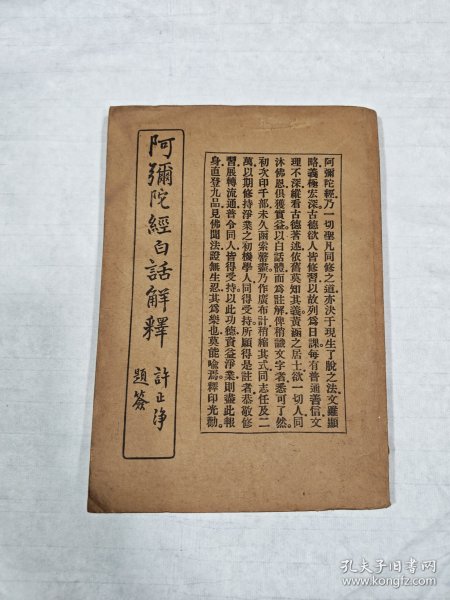 阿彌陀經乃一切聖凡同修之道亦決于現生了脫之法文雖顯
略義極宏深古德欲人皆修習以故列爲日課每有普通善信文
理不深縱看古德著述依舊莫知其義黃涵之居士欲一切人同
沐佛恩俱獲實益以白話體而爲註解俾稍識文字者悉可了然
初次印千部未久函索罄盡乃作廣布計稍縮其式同志任及二
萬以期修持淨業之初機學人同得受持所願得是註者恭敬修
習展轉流通普令同人皆得受持以此功德資益淨業則盡此報
身直登九品見佛聞法證無生忍其爲樂也莫能喻焉釋印光勸
阿彌陀經白話解釋
許止淨
題簽
孔夫子旧书网
www.kongfz.com